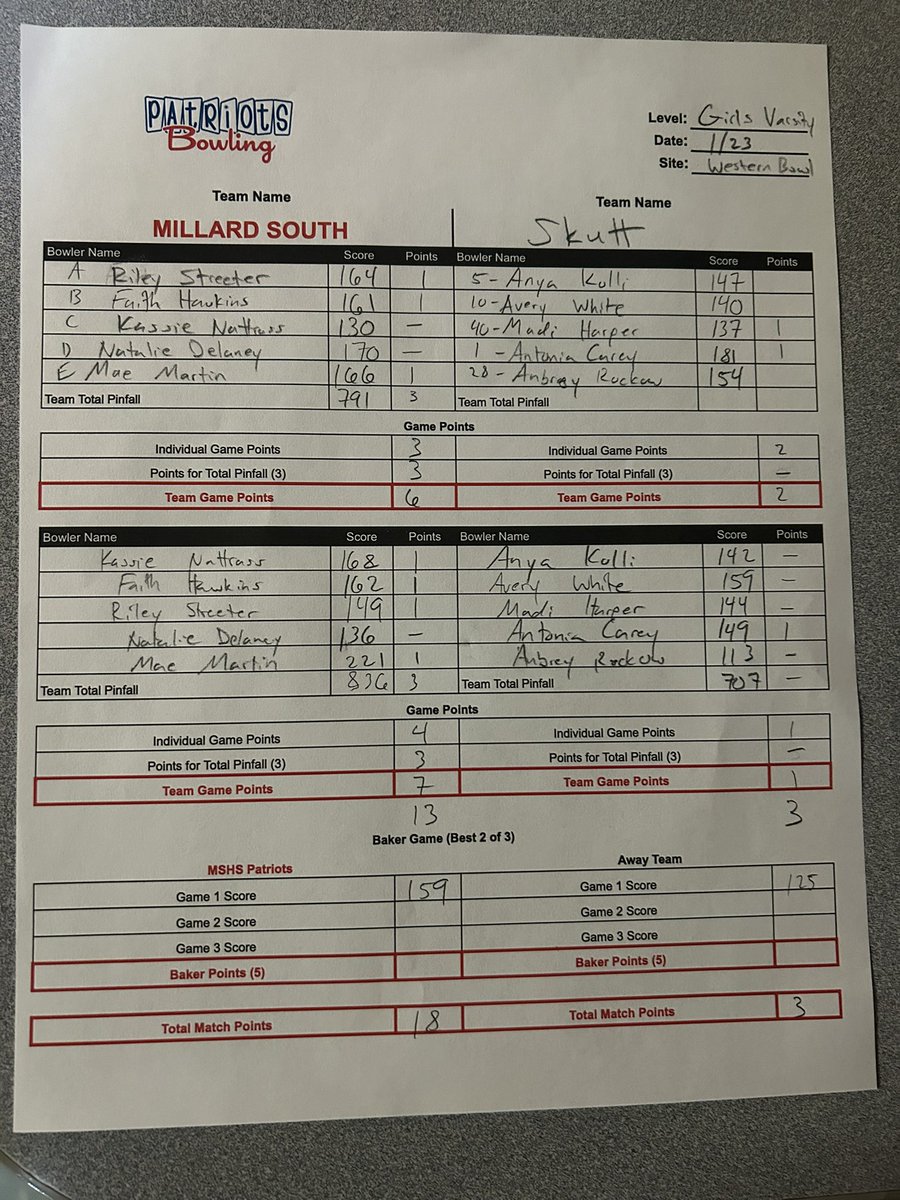 PATRIOTS
Bowling
Level: Girls Varsity
Date: 1/23
Site: Western Bowl
Team Name Team Name
MILLARD SOUTH Skutt
Bowler Name Score Points Bowler Name Score Points
A Riley Streeter 164 1 5-Anya Kolli 147
B Faith Hawkins 161 1 10-Avery White 140
C Kassie Nattrass 130 — 40-Madi Harper 137 1
D Natalie Delaney 170 — 1-Antonia Carey 181 1
E Mae Martin 166 1 28-Anbrey Rockow 154
Team Total Pinfall 791 3 Team Total Pinfall
Game Points
Individual Game Points 3 Individual Game Points 2
Points for Total Pinfall (3) 3 Points for Total Pinfall (3) —
Team Game Points 6 Team Game Points 2
Bowler Name Score Points Bowler Name Score Points
Kassie Nattrass 168 1 Anya Kolli 142 —
Faith Hawkins 162 1 Avery White 159 —
Riley Streeter 149 1 Madi Harper 144 —
Natalie Delaney 136 — Antonia Carey 149 1
Mae Martin 221 1 Anbrey Rockow 113 —
Team Total Pinfall 836 3 Team Total Pinfall 707 —
Game Points
Individual Game Points 4 Individual Game Points 1
Points for Total Pinfall (3) 3 Points for Total Pinfall (3) —
Team Game Points 7 Team Game Points 1
13 3
Baker Game (Best 2 of 3)
MSHS Patriots Away Team
Game 1 Score 159 Game 1 Score 125
Game 2 Score Game 2 Score
Game 3 Score Game 3 Score
Baker Points (5) Baker Points (5)
Total Match Points 18 Total Match Points 3